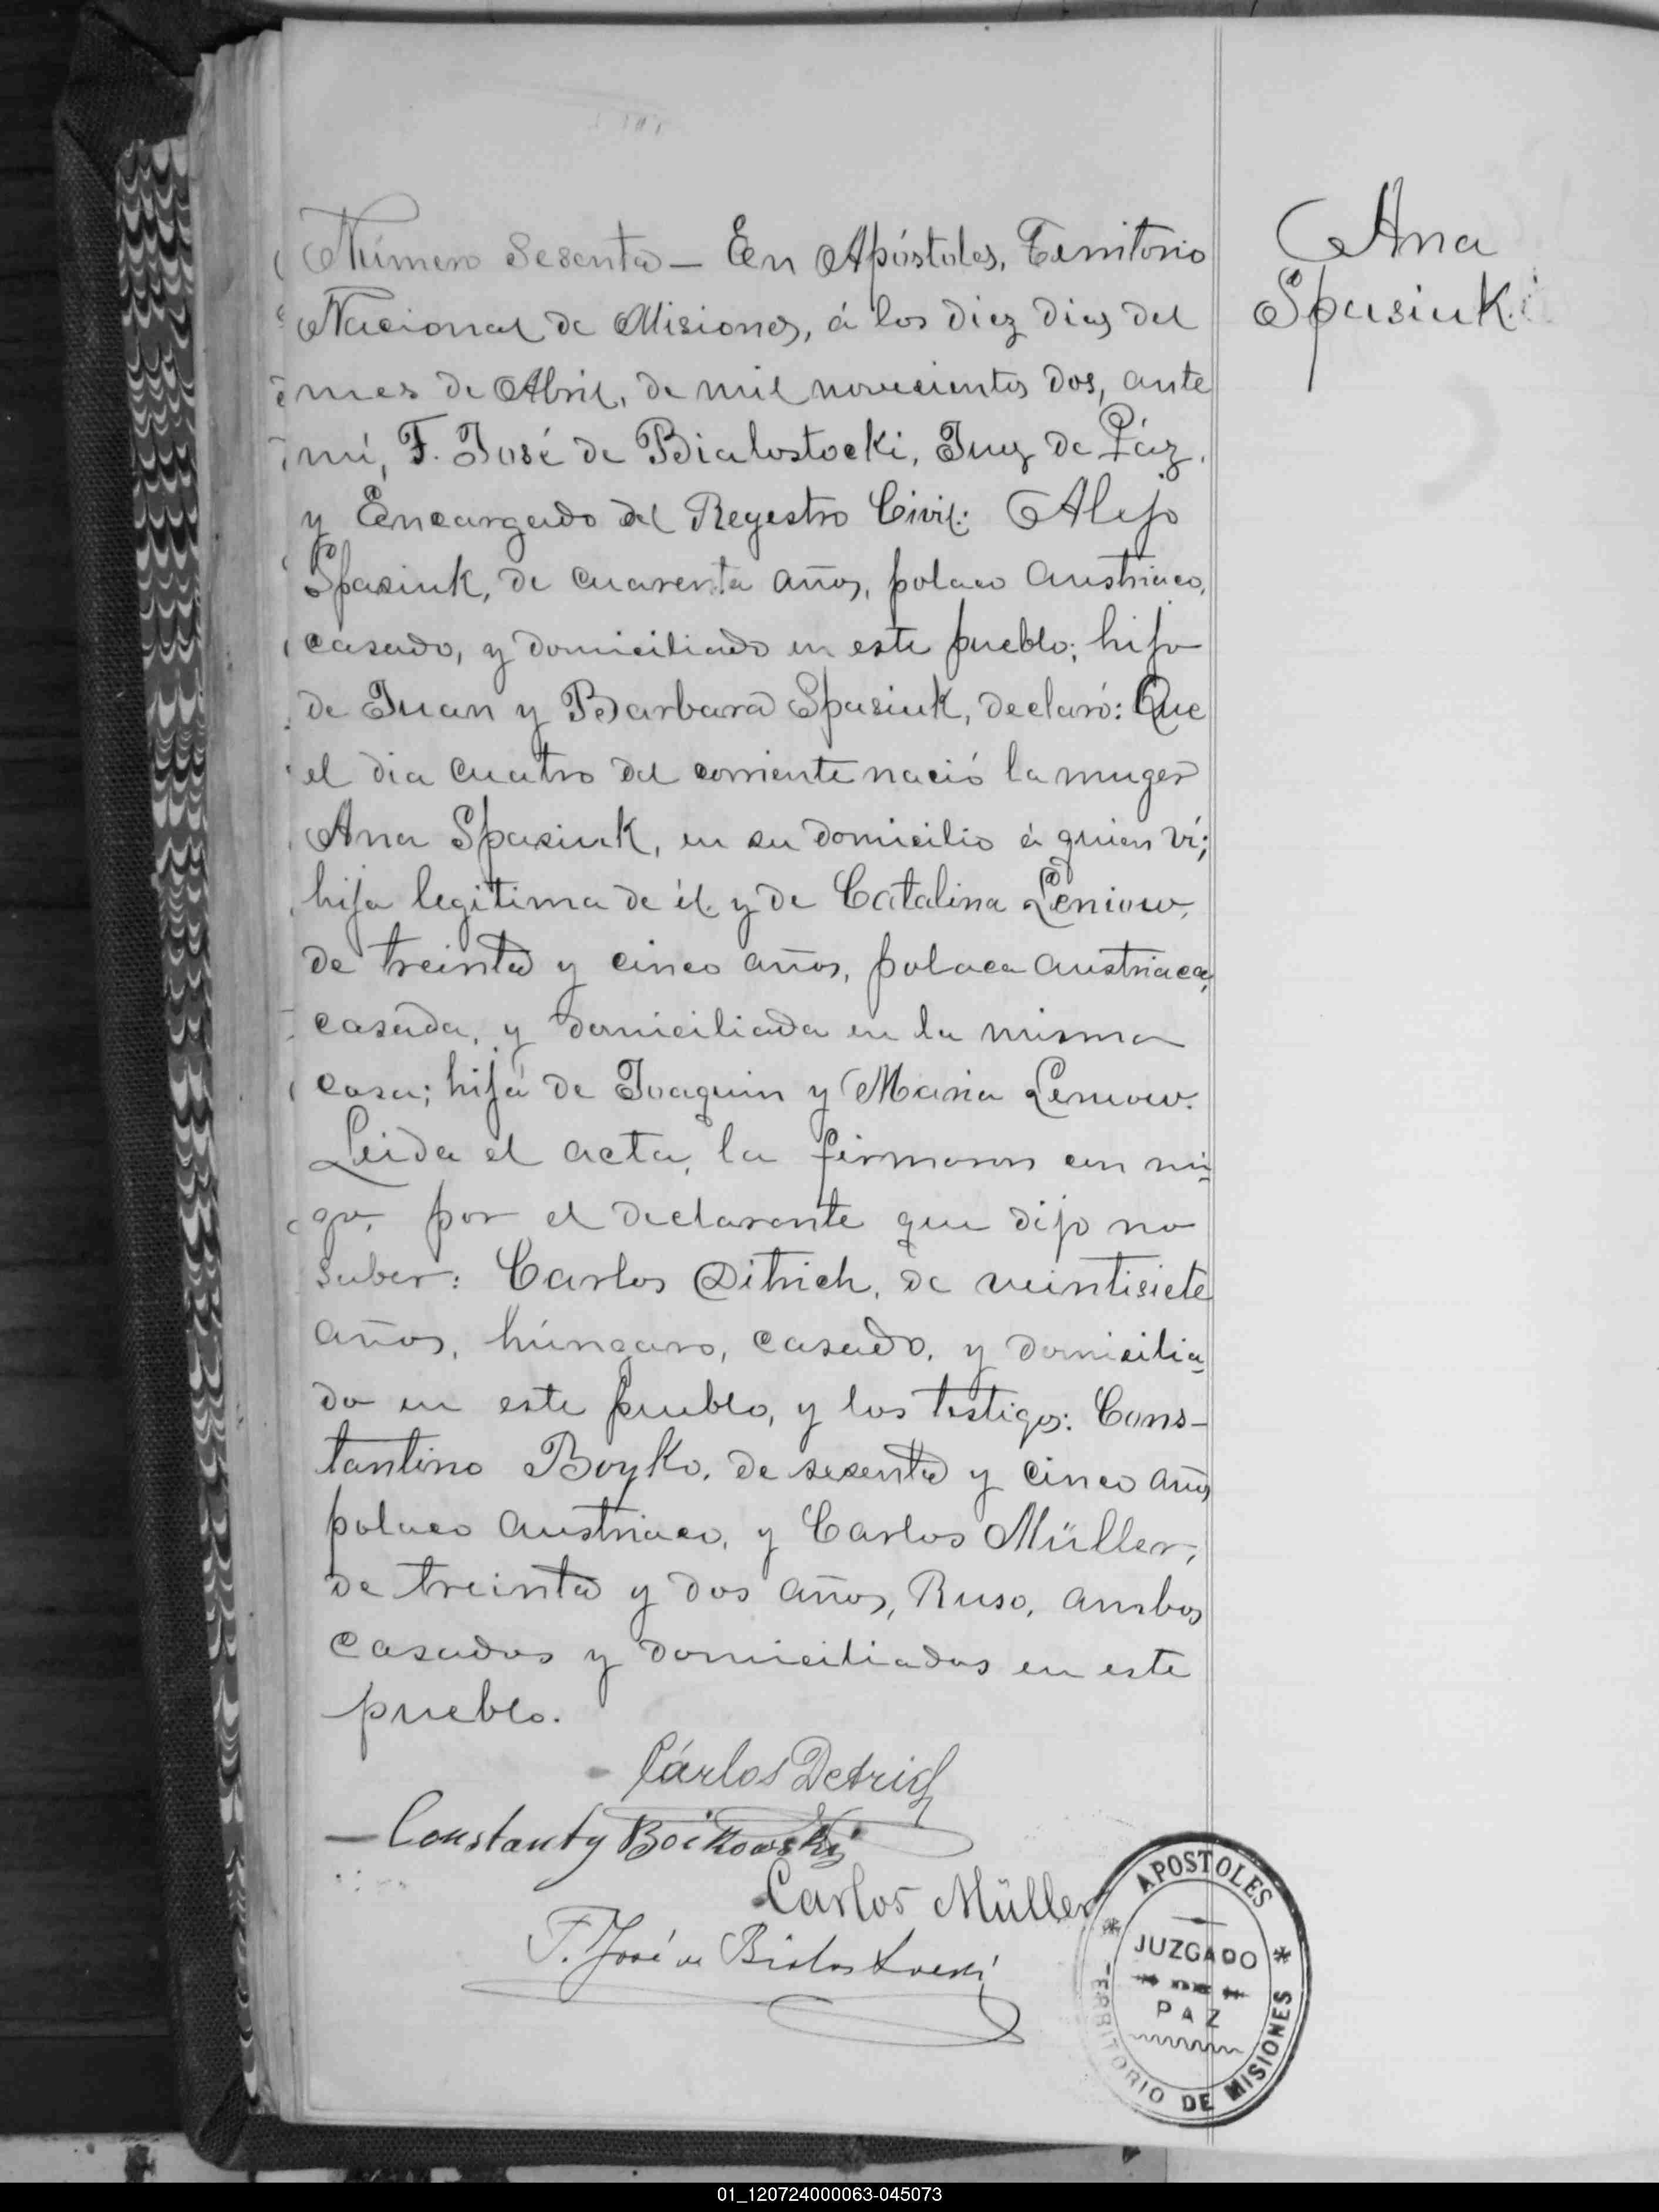 Ana
Spasiuk.
Número Sesenta — En Apóstoles, Territorio
Nacional de Misiones, á los diez dias del
mes de Abril, de mil novecientos dos, ante
mí, F. José de Bialostocki, Juez de Páz,
y Encargado del Registro Civil: Alejo
Spasiuk, de cuarenta años, polaco austriaco,
casado, y domiciliado en este pueblo; hijo
de Juan y Barbara Spasiuk, declaró: Que
el dia cuatro del corriente nació la muger
Ana Spasiuk, en su domicilio á quien ví;
hija legitima de él y de Catalina Leniow,
de treinta y cinco años, polaca austriaca,
casada, y domiciliada en la misma
casa; hija de Joaquin y Maria Leniow.
Leida el acta, la firmaron con mi-
go, por el declarante que dijo no
saber: Carlos Ditrich, de veintisiete
años, húngaro, casado, y domicilia-
do en este pueblo, y los testigos: Cons-
tantino Boyko, de sesenta y cinco años
polaco austriaco, y Carlos Müller,
de treinta y dos años, Ruso, ambos
casados y domiciliados en este
pueblo.
Cárlos Detrich
Constanty Boikowski
Carlos Müller
F. José de Bialostocki
APOSTOLES
JUZGADO
DE
PAZ
TERRITORIO DE MISIONES
01_120724000063-045073